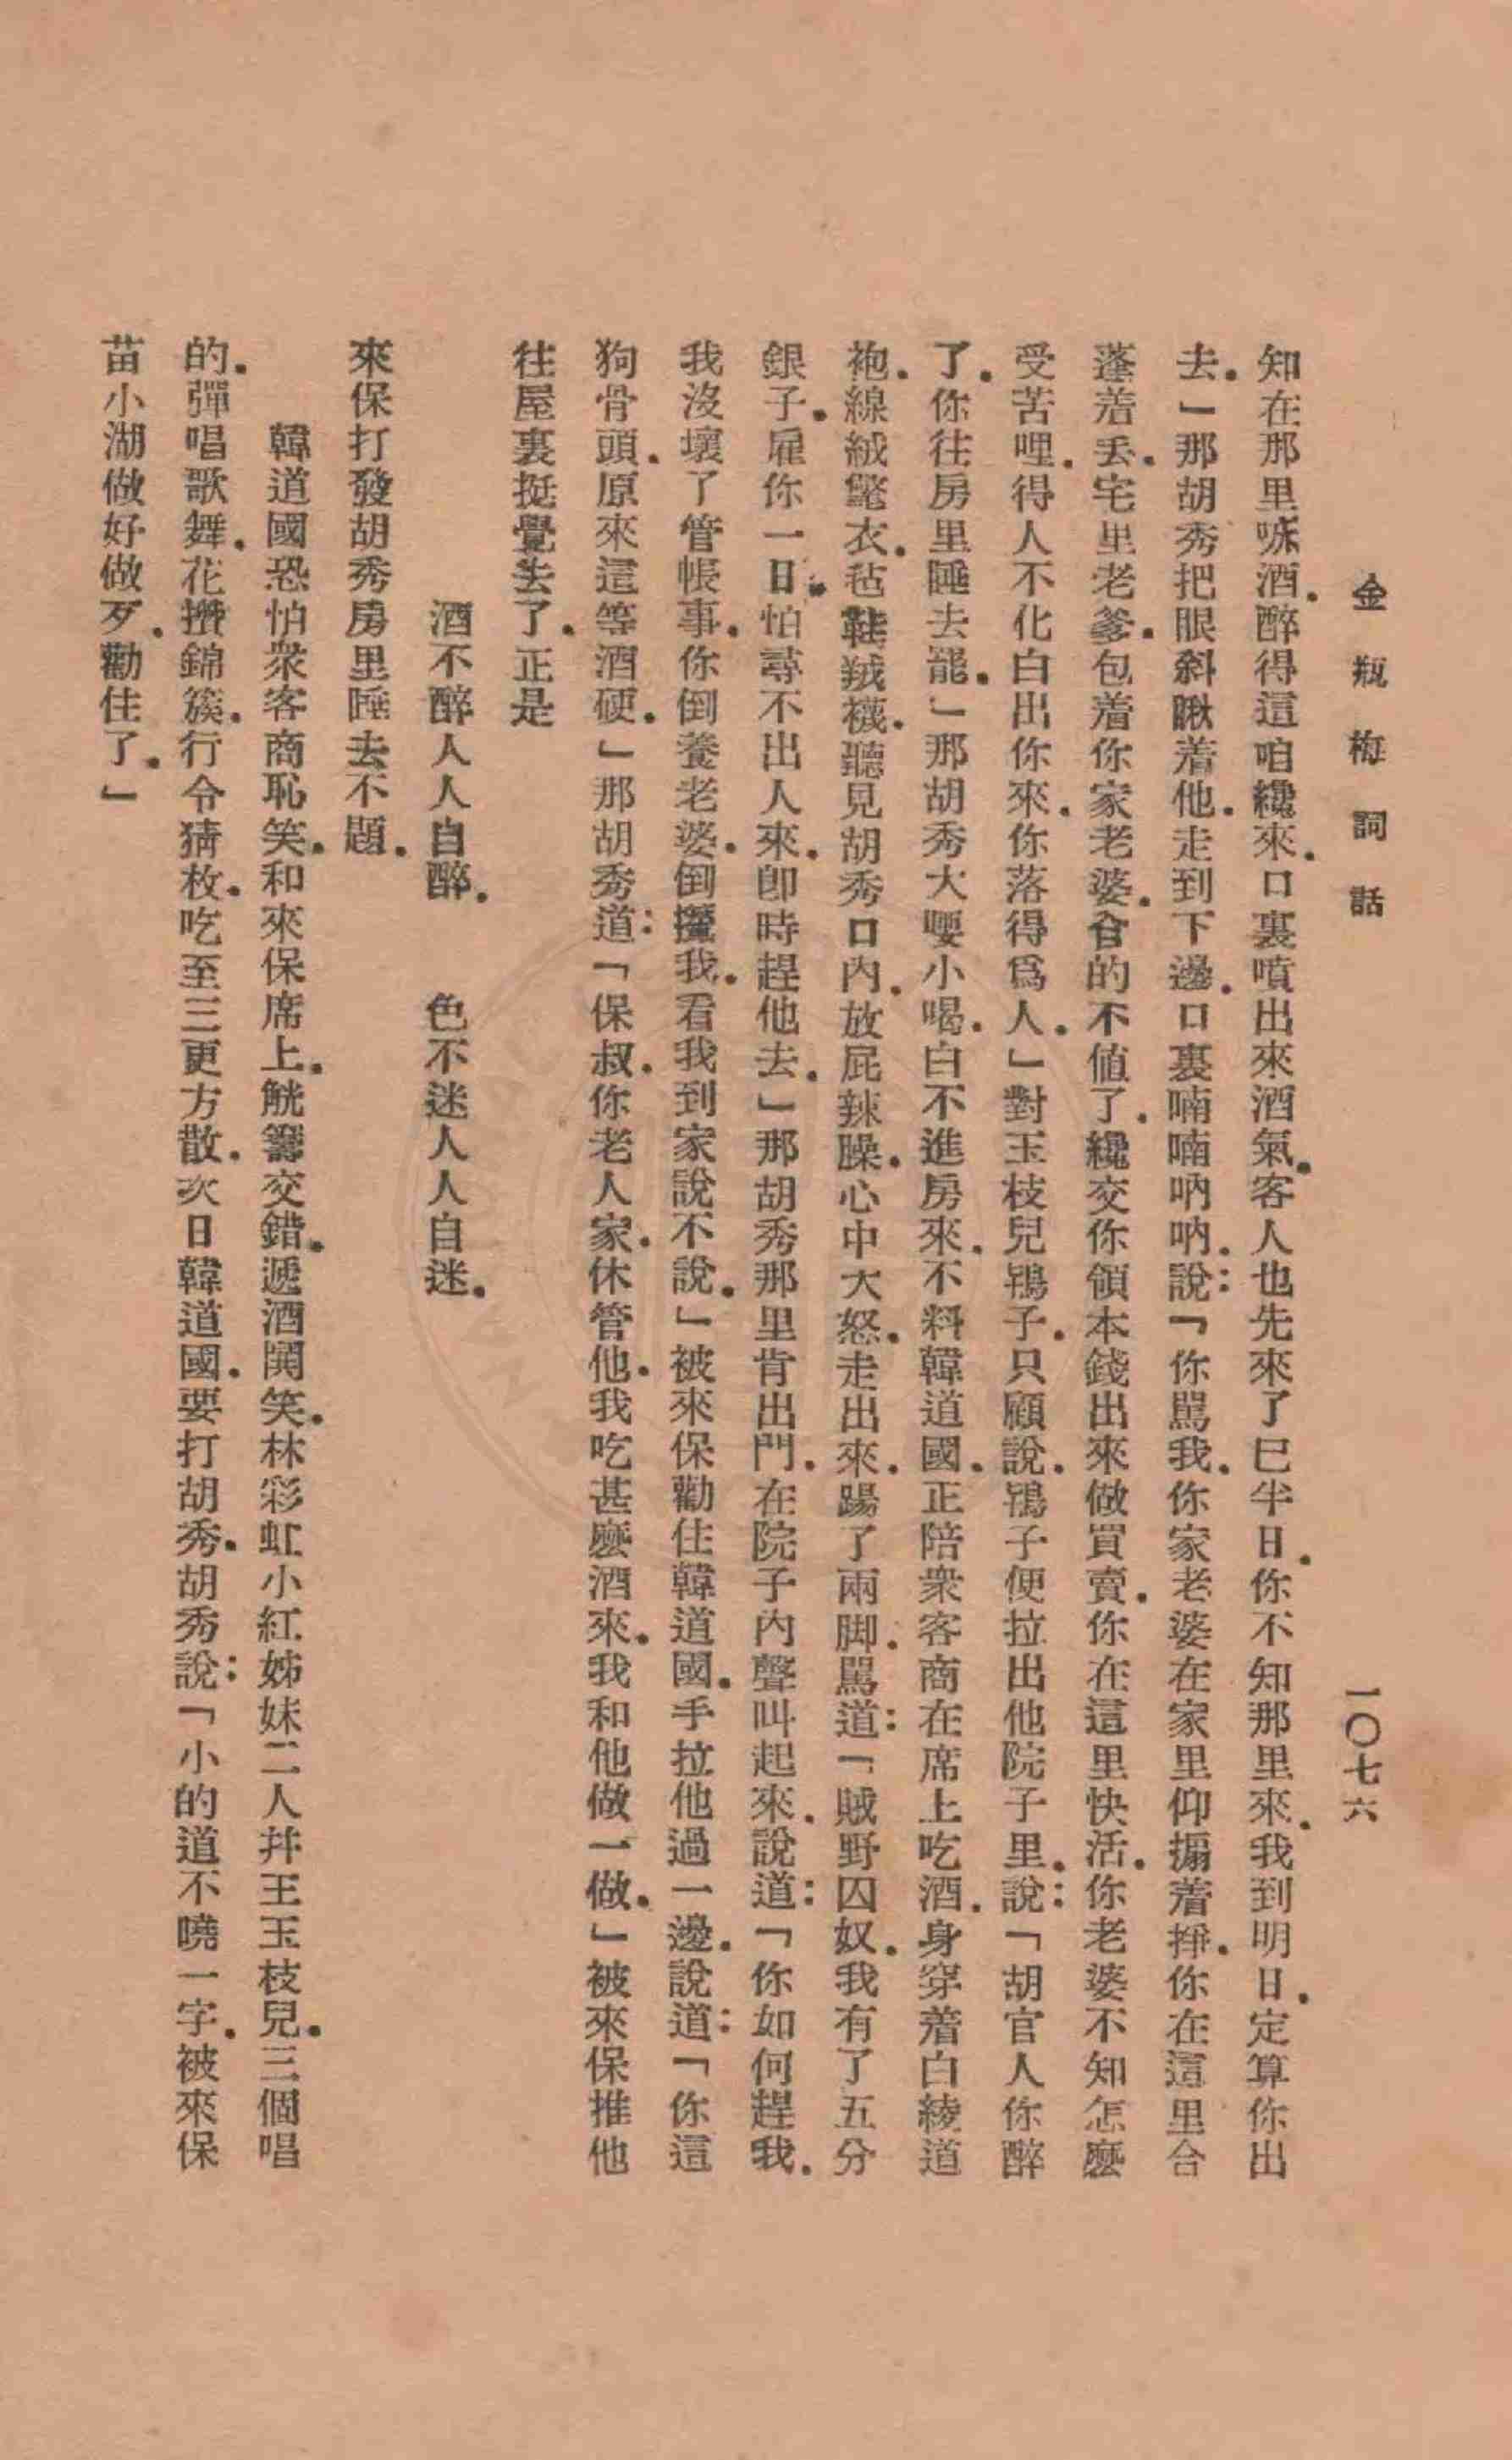 金瓶梅詞話
一〇七六
知在那里㖭酒．醉得這咱纔來．口裏噴出來酒氣．客人也先來了巳半日．你不知那里來．我到明日．定算你出
去．」那胡秀把眼斜瞅着他．走到下邊．口裏喃喃吶吶．說：「你駡我．你家老婆在家里仰搧着掙．你在這里合
蓬着丢．宅里老爹．包着你家老婆．㒲的不値了．纔交你領本錢出來做買賣．你在這里快活．你老婆不知怎麽
受苦哩．得人不化白出你來．你落得爲人．」對玉枝兒鴇子．只顧說．鴇子便拉出他院子里．說：「胡官人你醉
了．你往房里睡去罷．」那胡秀大嘤小喝．白不進房來．不料韓道國．正陪衆客商在席上吃酒．身穿着白綾道
袍．線絨氅衣．毡鞋絨襪．聽見胡秀口內．放屁辣臊．心中大怒．走出來．踢了兩脚．駡道：「賊野囚奴．我有了五分
銀子．雇你一日．怕尋不出人來．卽時趕他去．」那胡秀那里肯出門．在院子內聲叫起來．說道：「你如何趕我．
我沒壞了管帳事．你倒養老婆．倒攆我．看我到家說不說．」被來保勸住韓道國．手拉他過一邊．說道：「你這
狗骨頭．原來這等酒硬．」那胡秀道：「保叔．你老人家．休管他．我吃甚麽酒來．我和他做一做．」被來保推他
往屋裏挺覺去了．正是
酒不醉人人自醉．　色不迷人人自迷．
來保打發胡秀房里睡去不題．
韓道國恐怕衆客商恥笑．和來保席上．觥籌交錯．遞酒鬨笑．林彩虹小紅姊妹二人幷王玉枝兒．三個唱
的．彈唱歌舞．花攢錦簇．行令猜枚．吃至三更方散．次日韓道國．要打胡秀．胡秀說：「小的道不曉一字．被來保
苗小湖做好做歹．勸住了．」